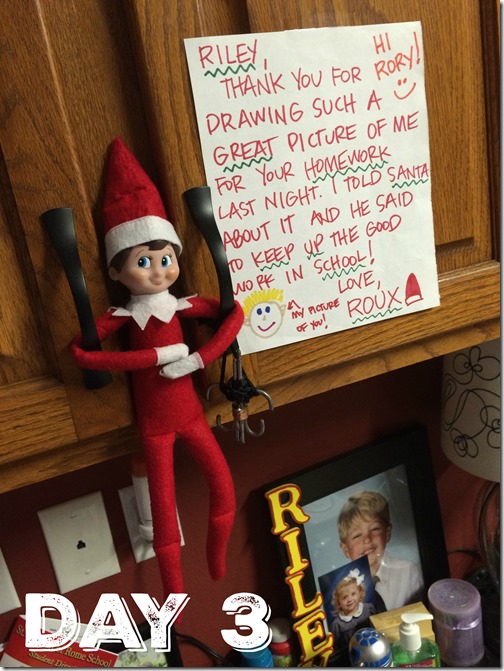 RILEY,
HI
RORY!
THANK YOU FOR
DRAWING SUCH A
GREAT PICTURE OF ME
FOR YOUR HOMEWORK
LAST NIGHT. I TOLD SANTA
ABOUT IT AND HE SAID
TO KEEP UP THE GOOD
WORK IN SCHOOL!
LOVE,
ROUX
MY PICTURE
OF YOU!
RILEY
DAY 3
Rome School
Student